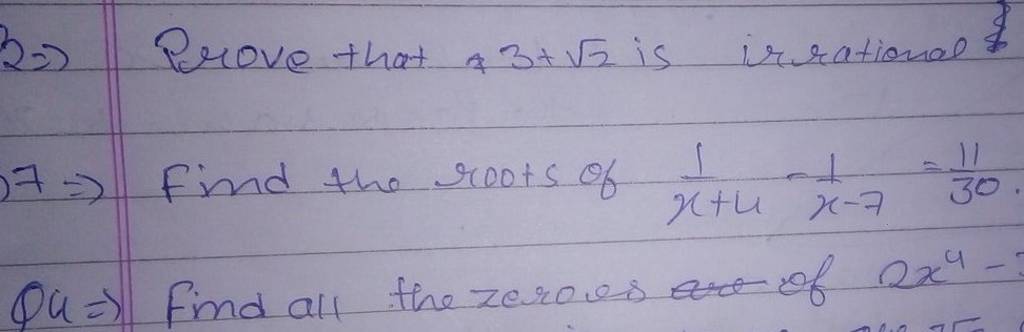 2=) Prove that 3+√2 is irrational
7=) Find the roots of 1/x+4 - 1/x-7 = 11/30.
Q4=) Find all the zeroes of 2x⁴ -